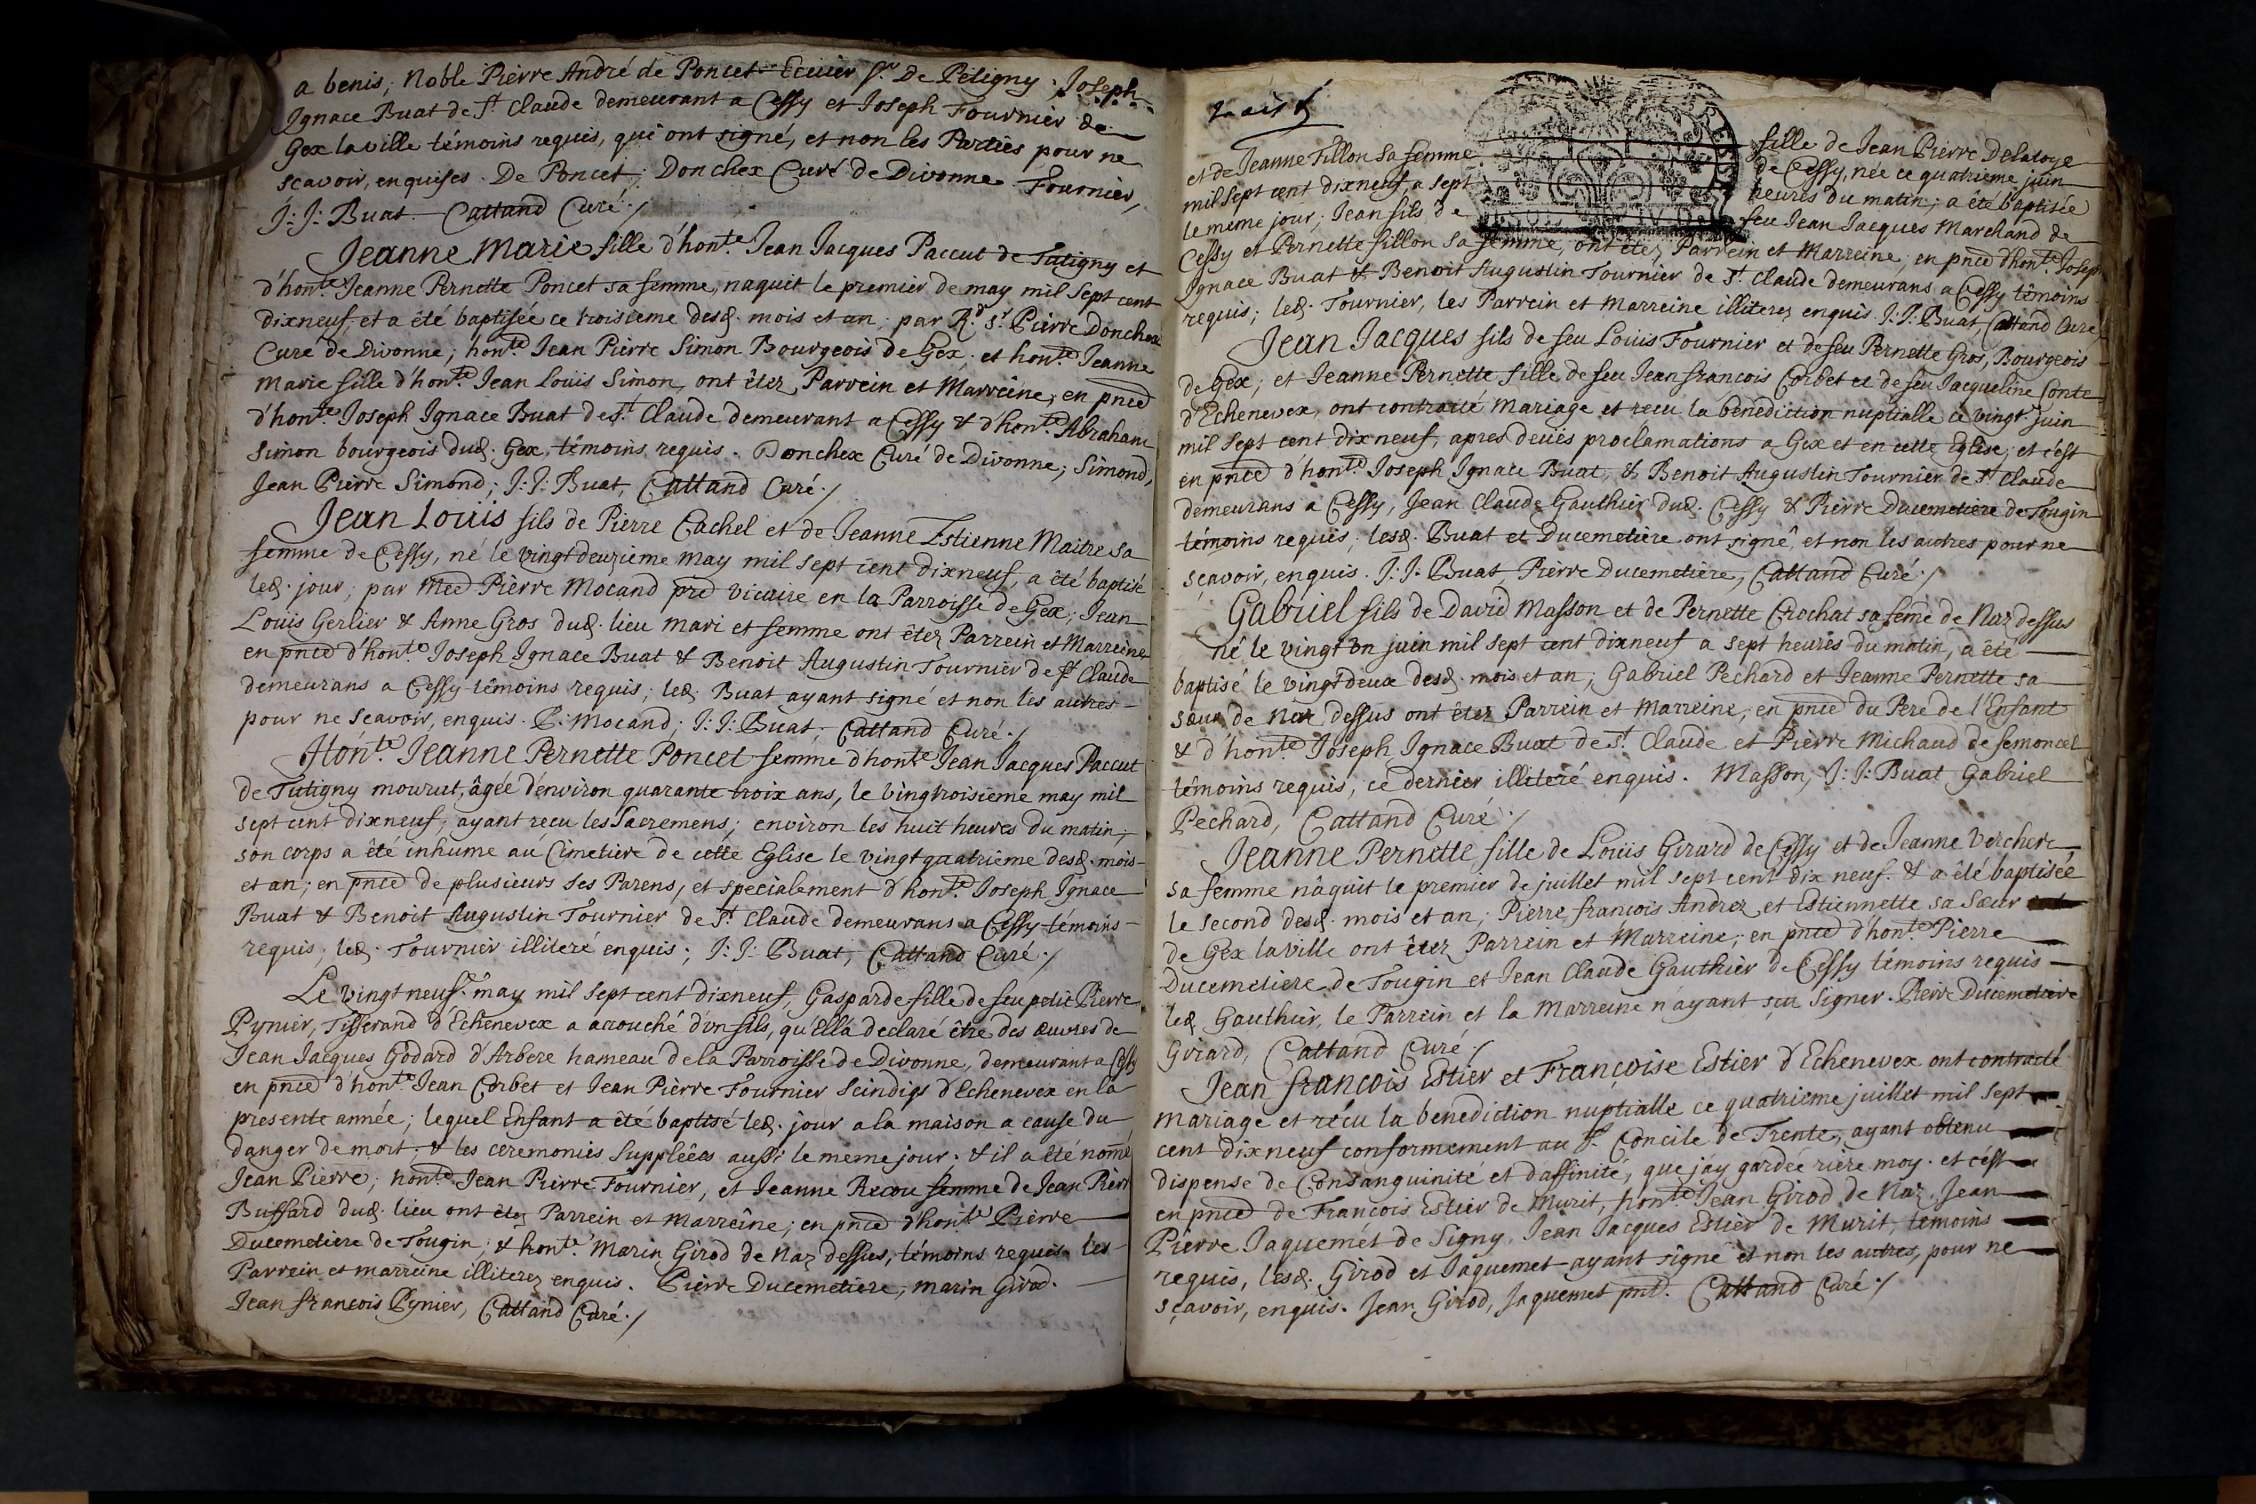 a benis; Noble Pierre André de Poncet Ecuier Sr. De Pétigny; Joseph
Ignace Buat de St. Claude demeurant a Cessy et Joseph Fournier de
Gex la ville témoins requis, qui ont signé, et non les Parties pour ne
scavoir, enquises. De Poncet, Donchex Curé de Divonne Fournier,
J: J: Buat. Cattand Curé./
Jeanne Marie fille d'honte. Jean Jacques Paccut de Tutigny et
d'honte. Jeanne Pernette Poncet sa femme, naquit le premier de may mil sept cent
dixneuf, et a été baptisée ce troisieme desd. mois et an, par Rd. Sr. Pierre Donchex
Curé de Divonne; honte. Jean Pierre Simon Bourgeois de Gex, et honte. Jeanne
Marie fille d'honte. Jean Loüis Simon, ont êtez Parrein et Marreine, en pnce
d'honte. Joseph Ignace Buat de St. Claude demeurant a Cessy & d'honte. Abraham
Simon bourgeois dud. Gex, témoins requis. Donchex Curé de Divonne; Simond,
Jean Pierre Simond; J: J: Buat, Cattand Curé./
Jean Louis fils de Pierre Cachel et de Jeanne Estienne Maitre sa
femme de Cessy, né le vingtdeuzieme may mil sept cent dixneuf, a été baptisé
led. jour, par Mre Pierre Mocand pre vicaire en la Parroisse de Gex; Jean
Louis Gerlier & Anne Gros dud. lieu mari et femme ont êtez Parrein et Marreine
en pnce d'honte. Joseph Ignace Buat & Benoit Augustin Tournier de St Claude
demeurans a Cessy têmoins requis; led. Buat ayant signé et non les autres
pour ne scavoir, enquis. P: Mocand; J: J: Buat; Cattand Curé./
Honte. Jeanne Pernette Poncet femme d'honte Jean Jacques Paccut
de Tutigny mourut, âgée d'environ quarante troix ans, le vingtroisieme may mil
sept cent dixneuf, ayant recu les Sacremens; environ les huit heures du matin,
son corps a été inhumé au Cimetiere de cette Eglise le vingtquatriême desd. mois
et an; en pnce de plusieurs ses Parens, et specialement d'honte. Joseph Ignace
Buat & Benoit Augustin Tournier de St. Claude demeurans a Cessy témoins
requis, led. Tournier illiteré enquis; J: J: Buat, Cattand Curé./
Le vingtneufe. may mil sept cent dixneuf, Gasparde fille de feu petit Pierre
Pynier, Tisserand d'Echenevex a acouché d'vn fils, qu'Ell'a declaré être des œuvres de
Jean Jacques Godard d'Arbere hameau de la Parroisse de Divonne, demeurant a Cessy
en pnce d'honte Jean Corbet et Jean Pierre Fournier Scindigs d'Echenevex en la
presente année; lequel Enfant a été baptisé led. jour a la maison a cause du
danger de mort, & les ceremonies suppléées aussi le meme jour. & il a été nomé
Jean Pierre; honte. Jean Pierre Fournier, et Jeanne Recou femme de Jean Pierr
Buffard dud. lieu ont êtez Parrein et Marreine; en pnce d'honte. Pierre
Ducemetiere de Tougin; & honte. Marin Girod de Naz dessus, témoins requis les
Parrein et marreine illiterez enquis. Pierre Ducemetiere, marin Girod.
Jean francois Pynier, Cattand Curé./
et de Jeanne Fillon sa femme
fille de Jean Pierre Delatoye
mil sept cent dixneuf, a sept
de Cessy, née ce quatrieme juin
heures du matin; a été baptisée
le même jour; Jean fils de
feu Jean Jacques Marchand de
Cessy et Pernette fillon sa femme, ont êtez Parrein et Marreine; en pnce d'honte. Joseph
Ignace Buat & Benoit Augustin Tournier de St. Claude demeurans a Cessy têmoins
requis; led. Tournier, les Parrein et Marreine illiterez enquis. J: J: Buat, Cattand Curé
Jean Jacques fils de feu Loüis Fournier et de feu Pernette Gros, Bourgeois
de Gex; et Jeanne Pernette fille de feu Jean françois Corbet et de feu Jacqueline Conte
d'Echenevex, ont contracté Mariage et recu la benediction nuptialle ce vingte juin
mil sept cent dixneuf, apres deües proclamations a Gex et en cette Eglise, et c'est
en pnce d'honte. Joseph Ignace Buat, & Benoit Augustin Tournier de St Claude
demeurans a Cessy, Jean Claude Gauthier dud. Cessy & Pierre Ducemetiere de Tougin
témoins requis; lesd. Buat et Ducemetiere ont signé, et non les autres pour ne
sçavoir, enquis. J: J: Buat, Pierre Ducemetiere, Cattand Curé./
Gabriel fils de David Masson et de Pernette Crochat sa feme de Naz dessus
né le vingt vn juin mil sept cent dixneuf a sept heures du matin, a été
baptisé le vingtdeux desd. mois et an; Gabriel Pechard et Jeanne Pernette sa
sœur de Naz dessus ont êtez Parrein et Marreine, en pnce du Pere de l'Enfant
& d'honte. Joseph Ignace Buat de St. Claude et Pierre Michaud de Semoncel
témoins requis, ce dernier illiteré enquis. Masson, J: J: Buat Gabriel
Pechard, Cattand Curé./
Jeanne Pernette fille de Loüis Girard de Cessy et de Jeanne Verchere
sa femme nâquit le premier de juillet mil sept cent dix neuf. & a été baptisée
le second desd. mois et an; Pierre françois Andrez et Estiennette sa Sœur
de Gex la ville ont êtez Parrein et Marreine; en pnce d'honte. Pierre
Ducemetiere de Tougin et Jean Claude Gauthier de Cessy témoins requis
led. Gauthier, le Parrein et la Marreine n'ayant sçu signer. Pierre Ducemetiere
Girard, Cattand Curé./
Jean françois Estier et Françoise Estier d'Echenevex ont contracté
mariage et réçu la benediction nuptialle ce quatrieme juillet mil sept
cent dixneuf conformement au St. Concile de Trente, ayant obtenu
dispense de Consanguinité et d'affinité, que j'ay gardée riere moy. et c'est
en pnce de François Estier de Murit, honte. Jean Girod de Naz, Jean
Pierre Jaquemét de Signy. Jean Jacques Estier de Murit, témoins
requis, lesd. Girod et Jaquemet ayant signé et non les autres, pour ne
sçavoir, enquis. Jean Girod, Jaquemet pnt. Cattand Curé./